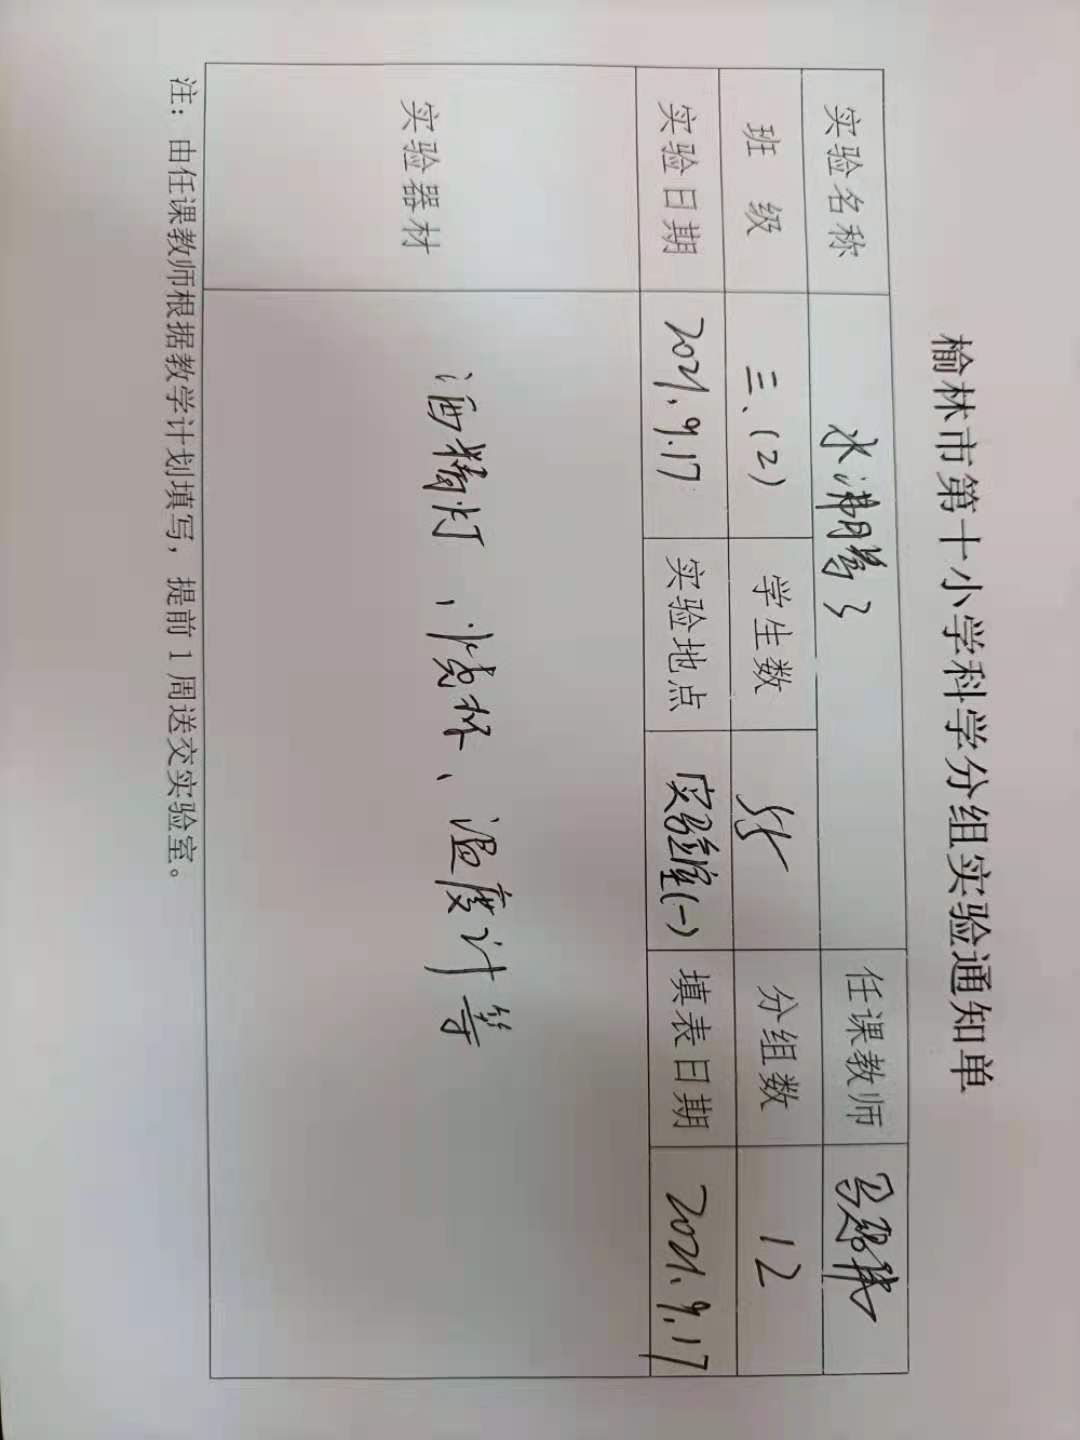 榆林市第十小学科学分组实验通知单
实验名称 水沸腾了 任课教师
班 级 三、(2) 学生数 55 分组数 12
实验日期 2021.9.17 实验地点 实验室(一) 填表日期 2021.9.17
实验器材 酒精灯、烧杯、温度计等
注：由任课教师根据教学计划填写，提前1周送交实验室。